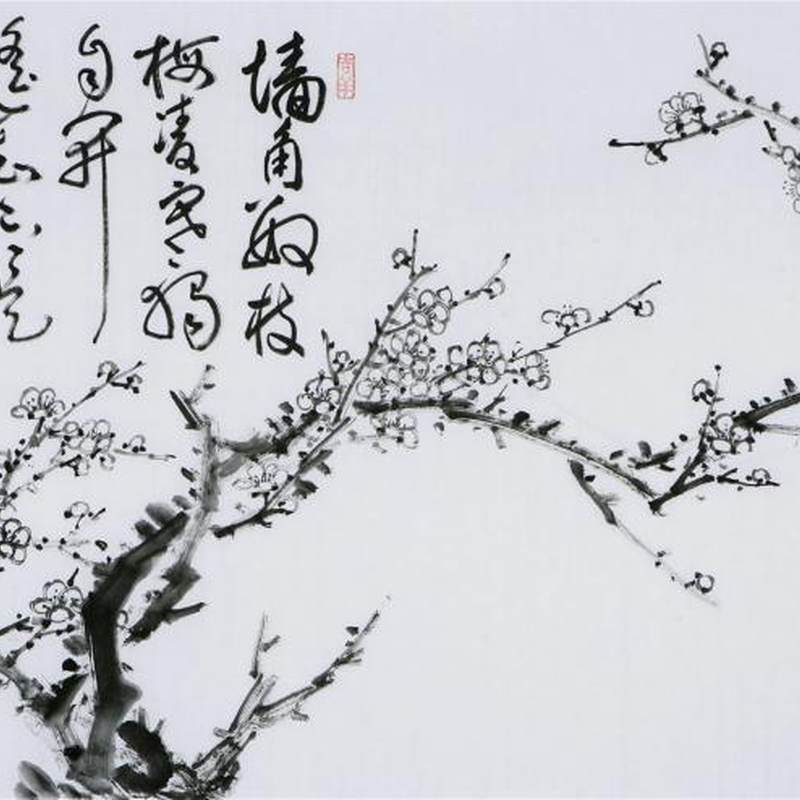 墙角数枝
梅凌寒独
自开
遥知不是